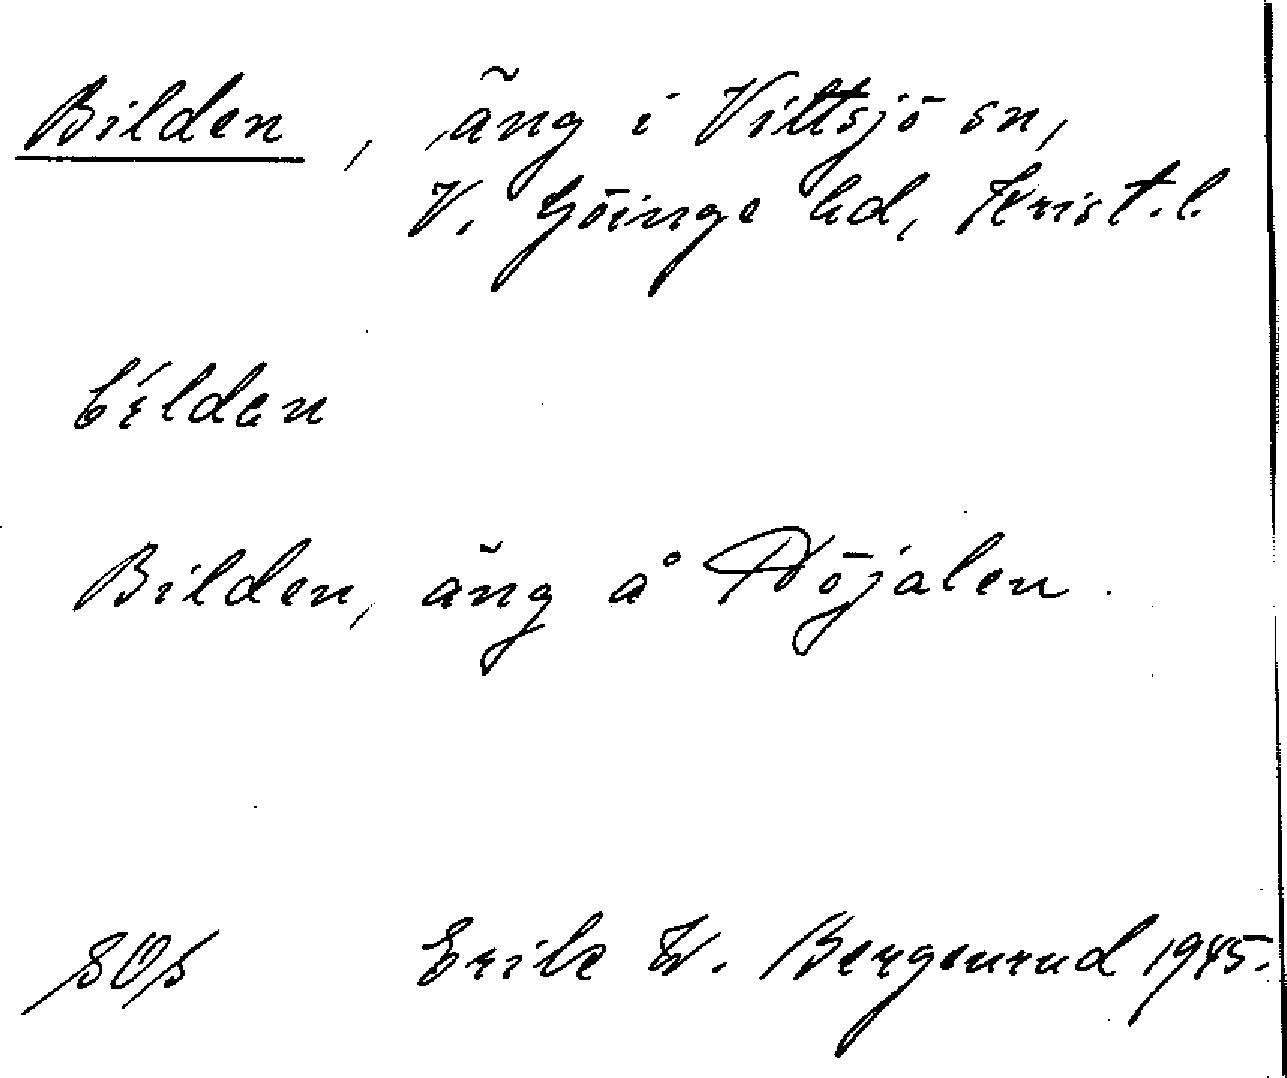 Bilden, äng i Vittsjö sn,
V. Göinge hd, Krist. l.
bílden
Bilden, äng å Nöjalen.
SOS Erik W. Bergenrud 1945.